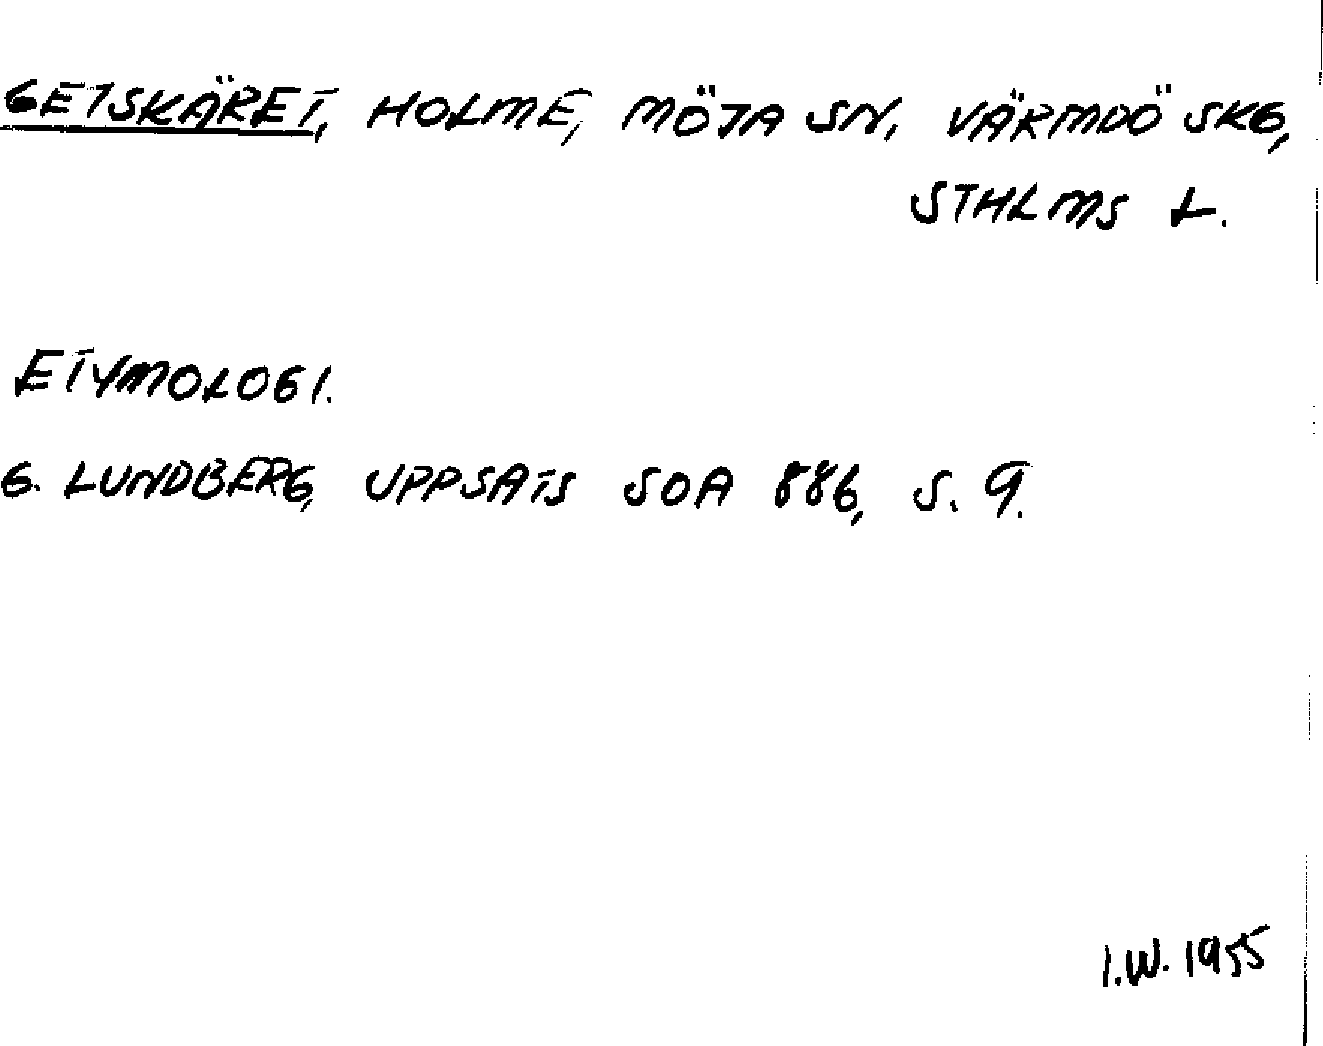 GETSKÄRET, HOLME, MÖJA SN, VÄRMDÖ SKG,
STHLMS L.
ETYMOLOGI.
G. LUNDBERG, UPPSATS SOA 886, S. 9.
I.W. 1955